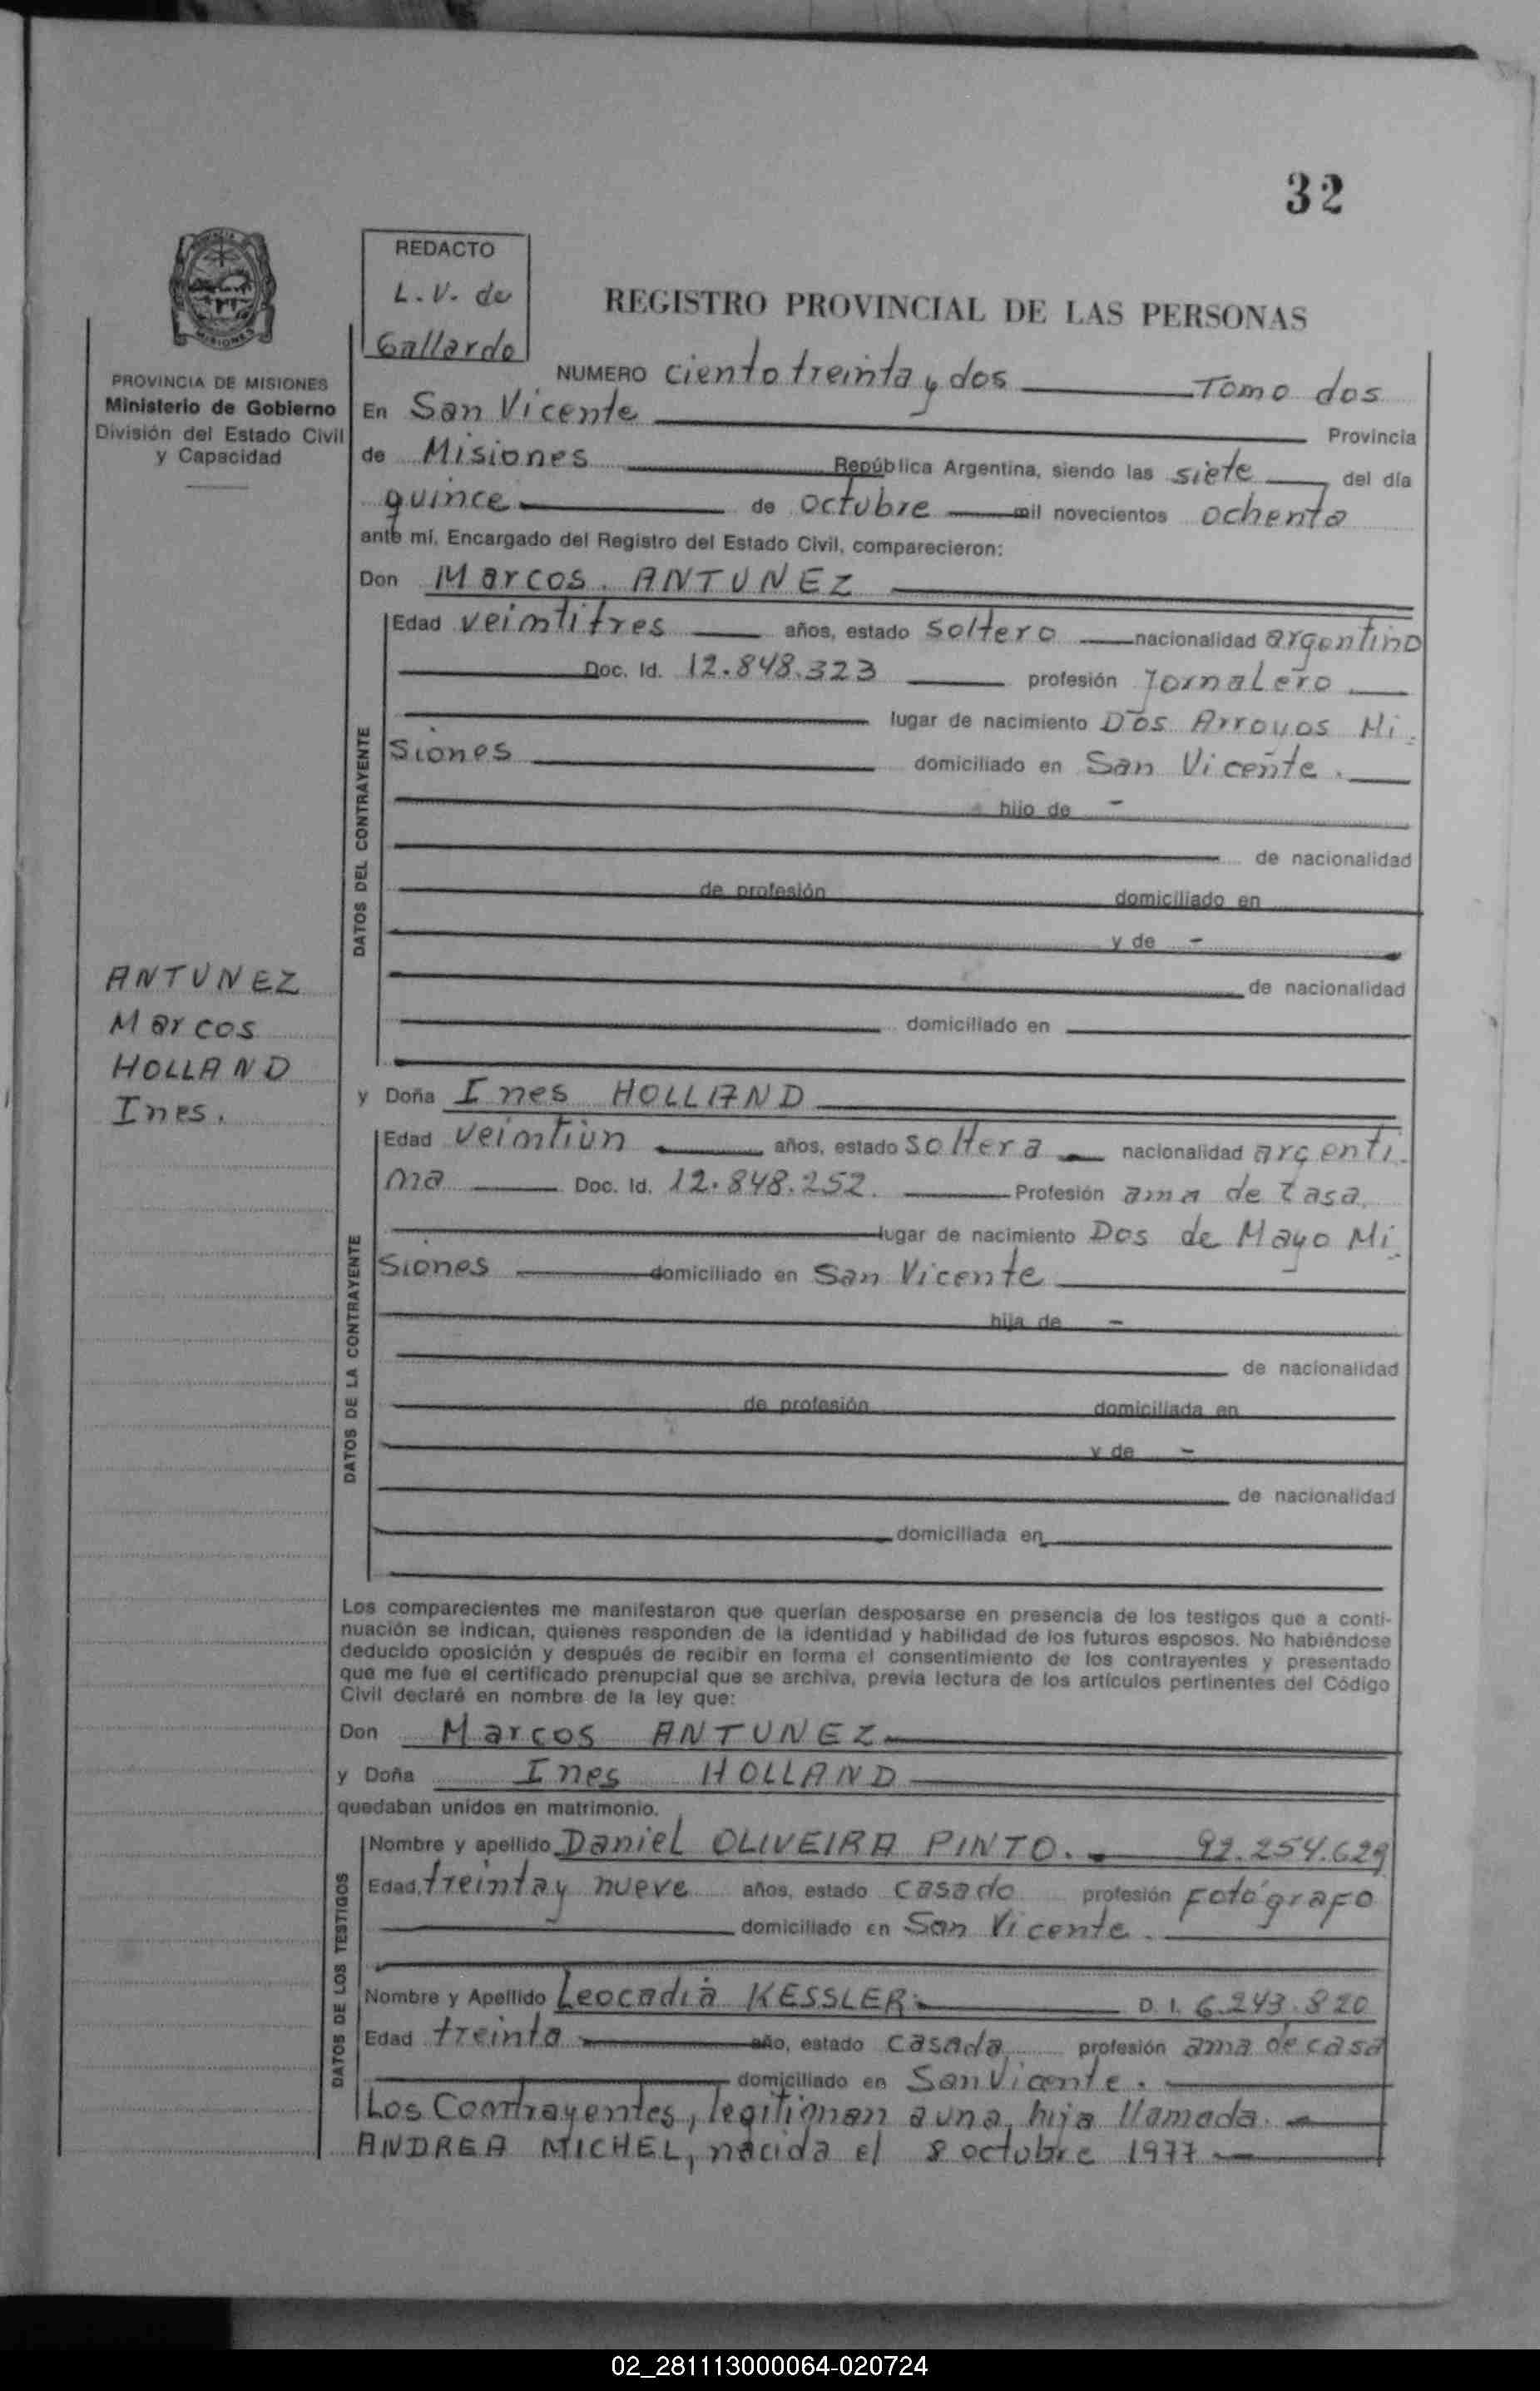 32
REDACTO
L. V. de
Gallardo
REGISTRO PROVINCIAL DE LAS PERSONAS
PROVINCIA DE MISIONES
Ministerio de Gobierno
División del Estado Civil
y Capacidad
NUMERO ciento treinta y dos Tomo dos
En San Vicente Provincia
de Misiones República Argentina, siendo las siete del día
quince de octubre mil novecientos ochenta
ante mí, Encargado del Registro del Estado Civil, comparecieron:
Don Marcos. ANTUNEZ
DATOS DEL CONTRAYENTE
Edad veintitres años, estado soltero nacionalidad argentino
Doc. Id. 12.848.323 profesión Jornalero
lugar de nacimiento Dos Arroyos Mi-
siones domiciliado en San Vicente.
hijo de -
de nacionalidad
de profesión domiciliado en
y de -
de nacionalidad
domiciliado en
ANTUNEZ
Marcos
HOLLAND
Ines.
y Doña Ines HOLLAND
DATOS DE LA CONTRAYENTE
Edad veintiun años, estado soltera nacionalidad argenti-
na Doc. Id. 12.848.252. Profesión ama de casa
lugar de nacimiento Dos de Mayo Mi-
siones domiciliado en San Vicente
hija de -
de nacionalidad
de profesión domiciliada en
y de -
de nacionalidad
domiciliada en
Los comparecientes me manifestaron que querían desposarse en presencia de los testigos que a conti-
nuación se indican, quienes responden de la identidad y habilidad de los futuros esposos. No habiéndose
deducido oposición y después de recibir en forma el consentimiento de los contrayentes y presentado
que me fue el certificado prenupcial que se archiva, previa lectura de los artículos pertinentes del Código
Civil declaré en nombre de la ley que:
Don Marcos ANTUNEZ
y Doña Ines HOLLAND
quedaban unidos en matrimonio.
DATOS DE LOS TESTIGOS
Nombre y apellido Daniel OLIVEIRA PINTO. 92.254.629
Edad, treinta y nueve años, estado casado profesión Fotógrafo
domiciliado en San Vicente.
Nombre y Apellido Leocadia KESSLER. D. I. 6.243.820
Edad treinta año, estado casada profesión ama de casa
domiciliado en San Vicente.
Los Contrayentes, legitiman a una hija llamada
ANDREA MICHEL, nacida el 8 octubre 1977
02_281113000064-020724